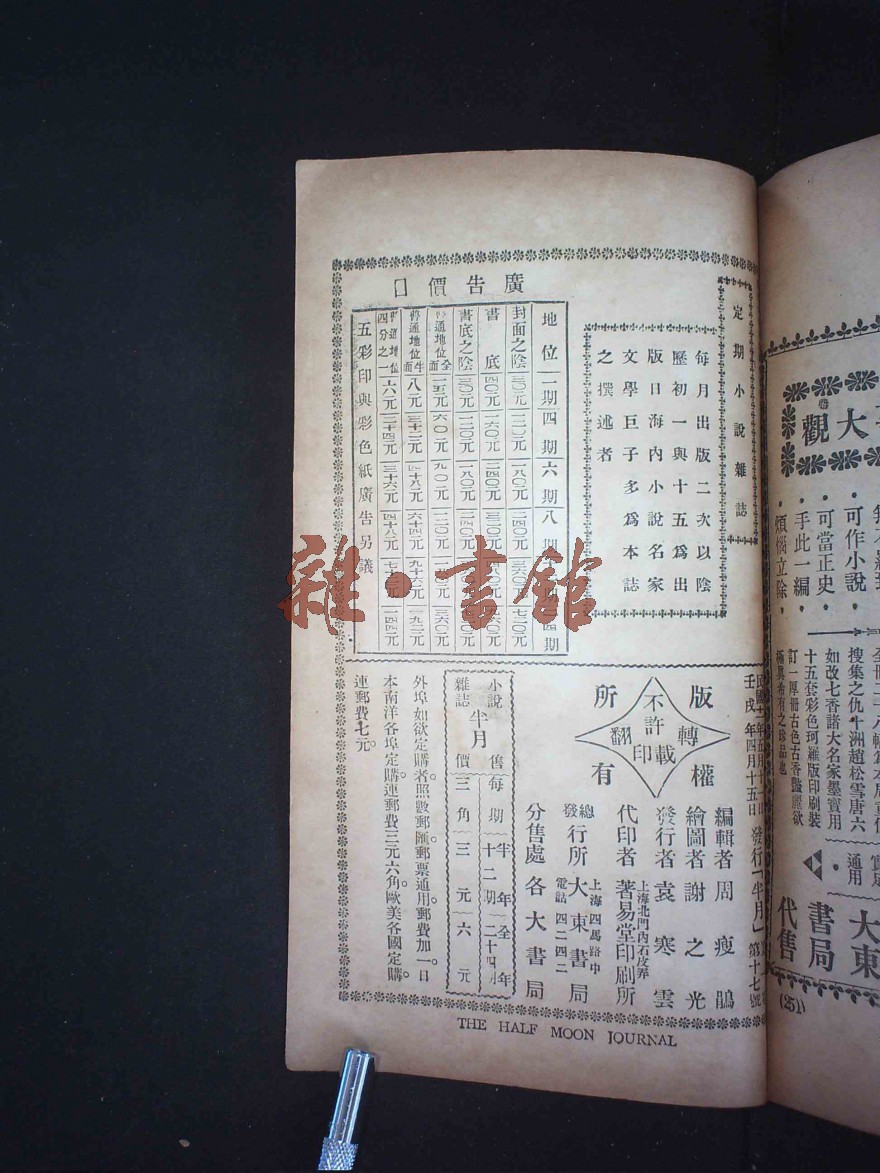 定期小說雜誌
每月出版二次以陰
歷初一與十五爲出
版日海內小說名家
文學巨子多爲本誌
之撰述者
廣告價目
地位 一期 四期 六期 八期 四期
封面之陰 三〇元 一二〇元 一八〇元 二四〇元 三六〇元 七二〇元
書底 四〇元 一六〇元 二四〇元 三二〇元
書底之陰 三〇元 一二〇元 一八〇元 二四〇元
普通地位全面 一五元 六〇元 九〇元 一二〇元 三六〇元
普通地位半面 八元 三十二元 四十八元 六十四元 九十六元 一九二元
普通地位四分之一 六元 二十四元 三十六元 四十八元 七十二元 一四四元
五彩印與彩色紙廣告另議
壬戌年四月十五日 發行「半月」第十七號
版權所有
不許轉載翻印
編輯者 周瘦鵑
繪圖者 謝之光
發行者 袁寒雲
代印者 上海北門內石皮弄 著易堂印刷所
總發行所 上海四馬路中 大東書局 電話四二四二
分售處 各大書局
小說雜誌 半月 售價
每期 半年十二期 全年二十四期
三角 三元 六元
外埠如欲定購者。照數郵匯郵票通用。郵費加一日
本南洋各埠定購。連郵費三元六角。歐美各國定購。
連郵費七元。
THE HALF MOON JOURNAL
大觀
可作小說
可當正史
手此一編
煩惱立除
搜集之仇十洲趙松雪唐六
如改七香諸大名家墨寶用
十五套彩色珂羅版印刷裝
訂一厚冊古色古香豔麗欲
通用
大東
書局
代售
(251)
雜·書館